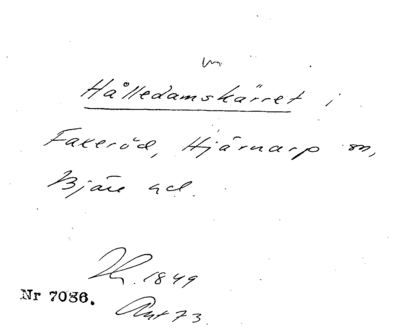 Hålledamskärret i
Faxeröd, Hjärnarp sn,
Bjäre hd.
1849
Nr 7086.
Ant 73.